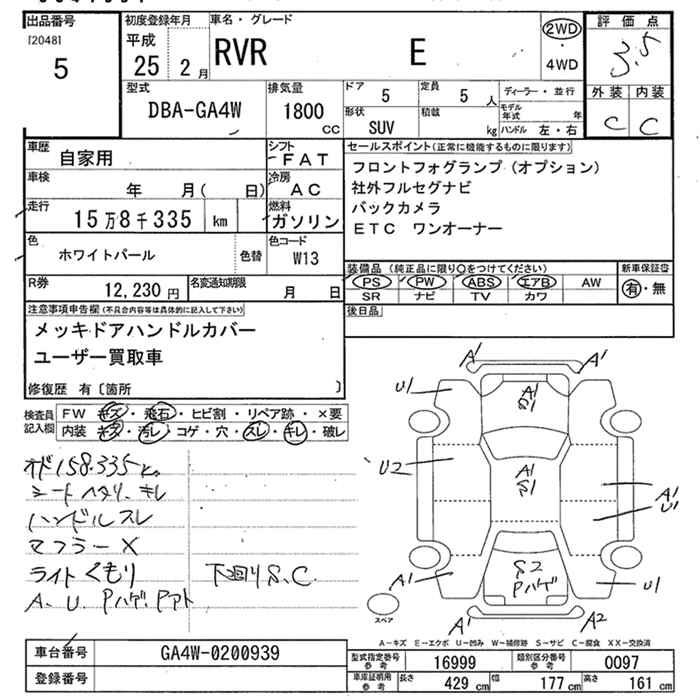 出品番号
[2048]
5
初度登録年月
平成
25 2 月
車名・グレード
RVR E
2WD
・
4WD
評価点
3.5
外装 内装
C C
型式
DBA-GA4W
排気量
1800 cc
ドア
5
定員
5 人
形状
SUV
積載
kg
ディーラー・並行
モデル年式 年
ハンドル 左・右
車歴
自家用
シフト
FAT
車検
年 月( 日)
冷房
AC
走行
15万8千335 km
燃料
ガソリン
色
ホワイトパール
色替
色コード
W13
R券
12,230 円
名変通知期限
月 日
セールスポイント(正常に機能するものに限ります)
フロントフォグランプ(オプション)
社外フルセグナビ
バックカメラ
ETC ワンオーナー
装備品(純正品に限り○をつけてください)
PS PW ABS エアB AW
SR ナビ TV カワ
新車保証書
有・無
後日品
注意事項申告欄(不具合内容等は具体的に記入して下さい)
メッキドアハンドルカバー
ユーザー買取車
修復歴 有〔箇所 〕
検査員記入欄
FW キズ・飛石・ヒビ割・リペア跡・×要
内装 キズ・汚レ・コゲ・穴・スレ・キレ・破レ
オド158.335k
シートヘタリ.キレ
ハンドルスレ
マフラーX
ライトくもり 下回りS.C.
A. U. Pハゲ. Pアト
A1 A1
U1 A1 S1 U1
U2 A1 S1 A1 U1
A1 S2 Pハゲ U1
A1 A2
スペア
A−キズ E−エクボ U−凹み W−補修跡 S−サビ C−腐食 XX−交換済
車台番号 GA4W-0200939
登録番号
型式指定番号 参考 16999
類別区分番号 参考 0097
車庫証明用 参考 長さ 429 cm 幅 177 cm 高さ 161 cm